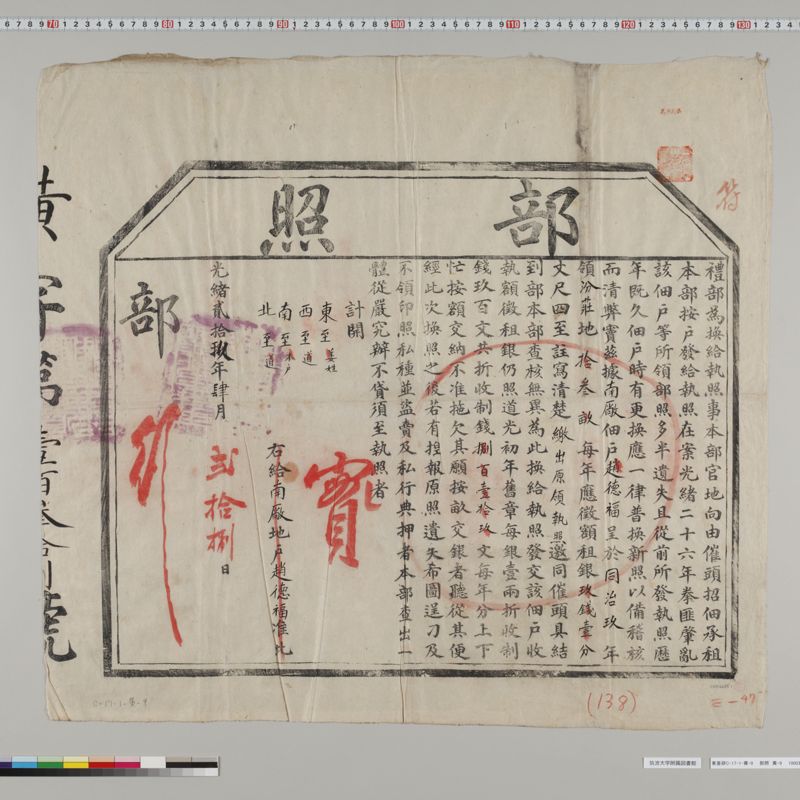 部照
禮部為換給執照事本部官地向由催頭招佃承租
本部按戶發給執照在案光緒二十六年拳匪肇亂
該佃戶等所領部照多半遺失且從前所發執照歷
年既久佃戶時有更換應一律普換新照以備稽核
而清弊竇茲據南廠佃戶趙德福呈於同治玖年
領汾莊地拾叁畝每年應徵額租銀玖錢壹分
丈尺四至註寫清楚繳出原領執照邀同催頭具結
到部本部查核無異為此換給執照發交該佃戶收
執額徵租銀仍照道光初年舊章每銀壹兩折收制
錢玖百文共折收制錢捌百壹拾玖文每年分上下
忙按額交納不准拖欠其願按畝交銀者聽從其便
經此次換照之後若有捏報原照遺失希圖逞刁及
不領印照私種並盜賣及私行典押者本部查出一
體從嚴究辦不貸須至執照者
計開
東至姜姓
西至道
南至本戶
北至道
右給南廠地戶趙德福准此
實
光緒貳拾玖年肆月貳拾捌日
部
行
黃字第壹百叁拾捌號
符
(138)
三-47
C-17-1-黃-9
筑波大学附属図書館